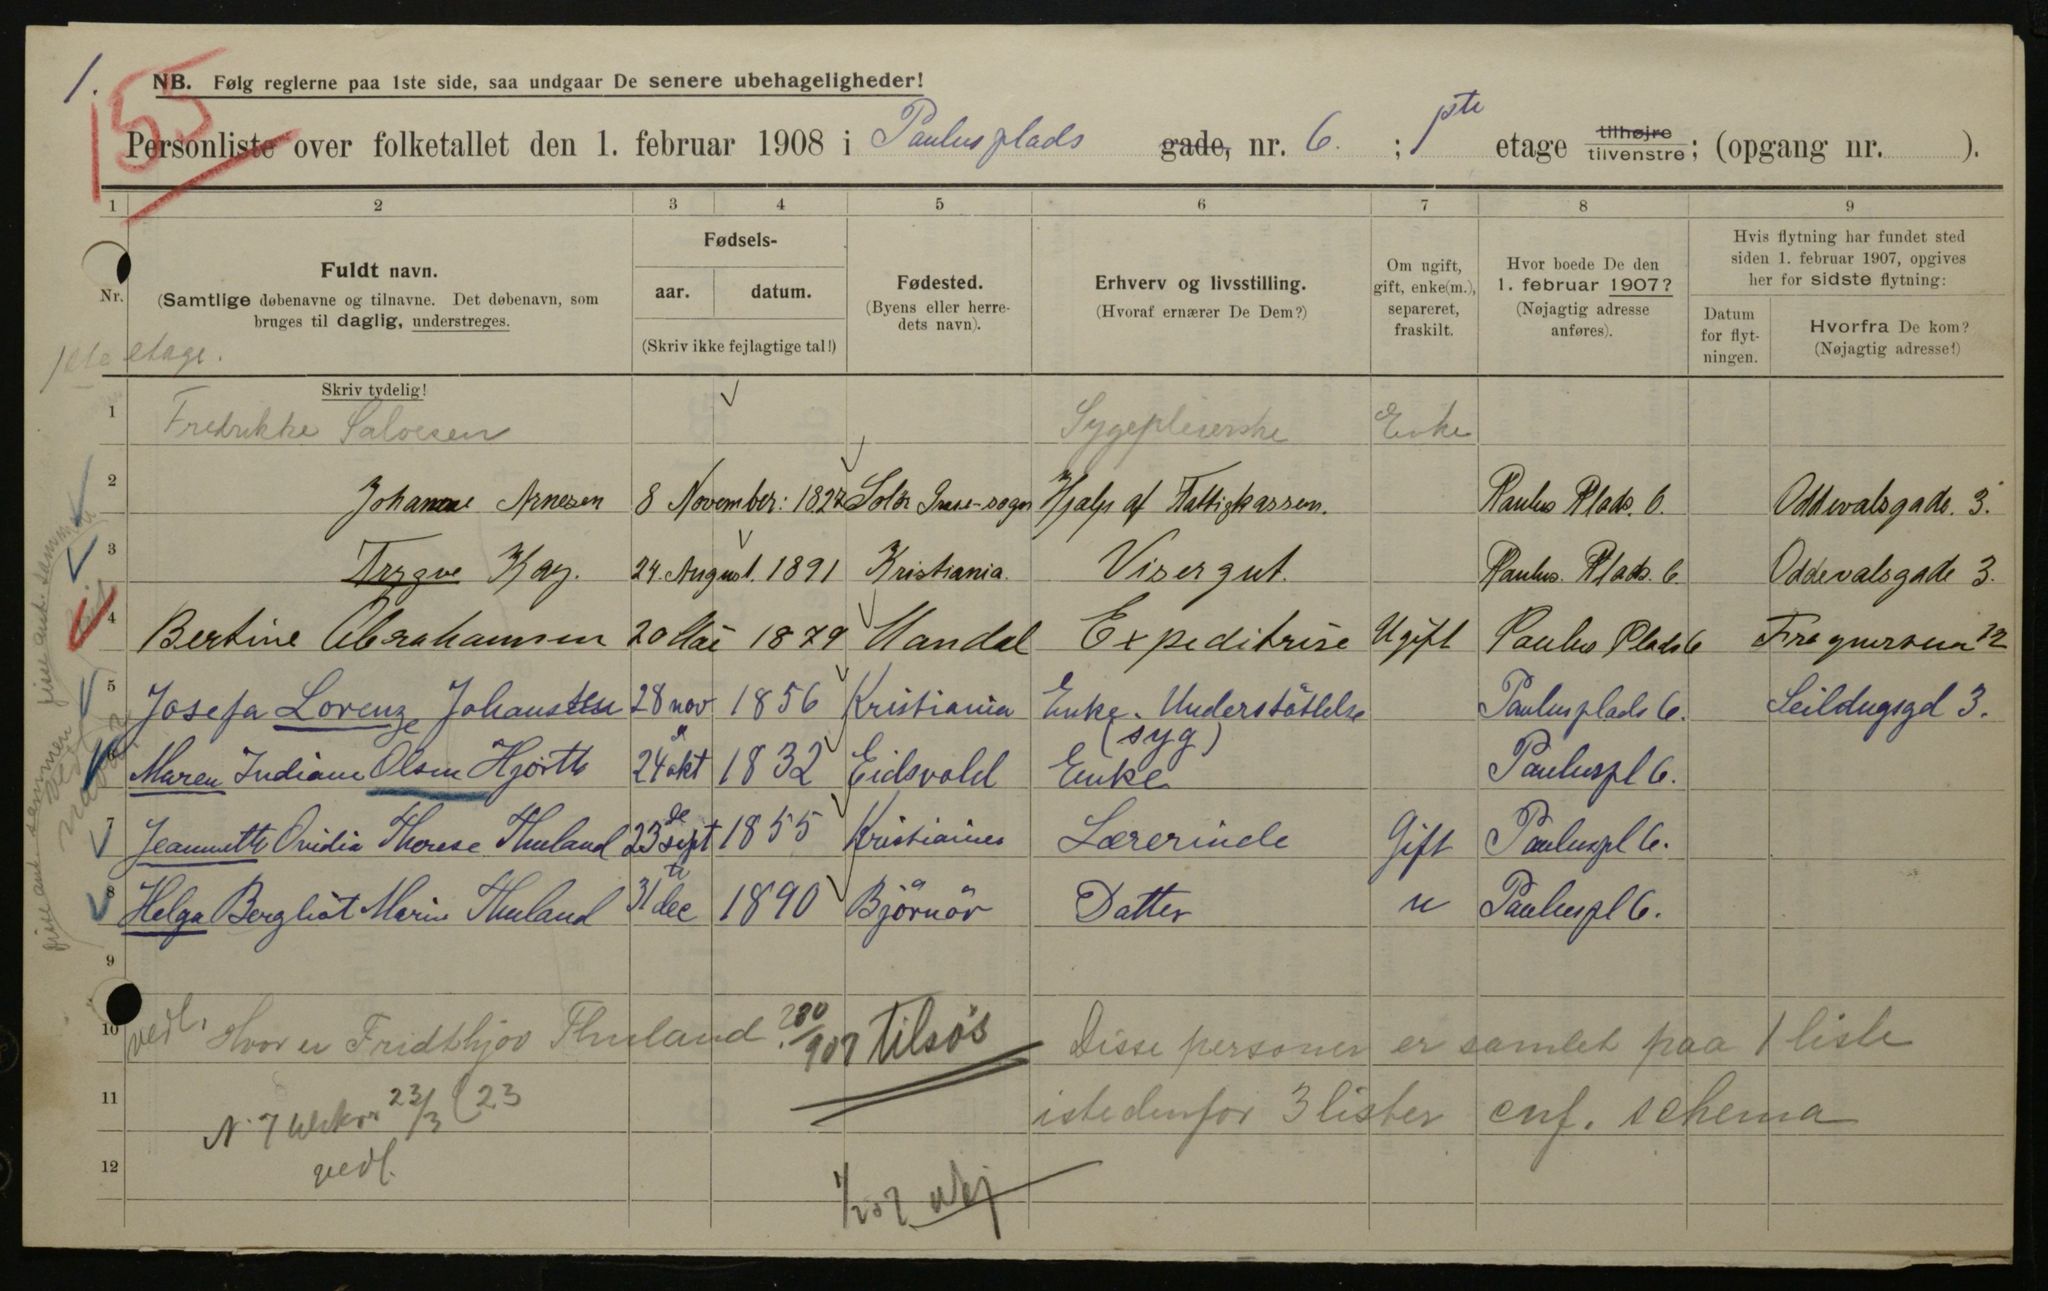 1.
155
NB. Følg reglerne paa 1ste side, saa undgaar De senere ubehageligheder!
Personliste over folketallet den 1. februar 1908 i Paulus plads gade, nr. 6. ; 1ste etage tilhøjre tilvenstre; (opgang nr. ).
1 2 3 4 5 6 7 8 9
Nr.
Fuldt navn.
(Samtlige døbenavne og tilnavne. Det døbenavn, som
bruges til daglig, understreges.
Fødsels-
aar. datum.
(Skriv ikke fejlagtige tal!)
Fødested.
(Byens eller herre-
dets navn).
Erhverv og livsstilling.
(Hvoraf ernærer De Dem?)
Om ugift,
gift, enke(m.),
separeret,
fraskilt.
Hvor boede De den
1. februar 1907?
(Nøjagtig adresse
anføres).
Hvis flytning har fundet sted
siden 1. februar 1907, opgives
her for sidste flytning:
Datum
for flyt-
ningen.
Hvorfra De kom?
(Nøjagtig adresse!)
1ste etage.
Skriv tydelig!
1 Fredrikke Salvesen Sygepleierske Enke
2 Johanne Arnesen 8 November: 1827 Solør sogn Hjalp af Fattigkassen. Paulus Plads. 6. Oddevalsgade. 3.
3 Trygve Kay. 24. August. 1891 Kristiania. Visergut. Paulus. Plads. 6 Oddevalsgade 3.
4 Bertine Abrahamsen 20 Mai 1879 Mandal Expeditrise Ugift Paulus Plads 6 Frognerveien 12
5 Josefa Lorenze Johansen 28 nov 1856 Kristiania Enke. Understøttelse Paulusplads 6. Seildugsgd 3.
(syg)
6 Maren Indiane Olsen Hjorth 24 okt 1832 Eidsvold Enke Pauluspl 6.
7 Jeannette Ovidia Therese Thuland 23de sept 1855 Kristiania Lærerinde Gift Pauluspl 6.
8 Helga Bergliot Marie Thuland 31 dec 1890 Bjørnør Datter u Pauluspl 6.
9
10 vedl. Hvor er Fridthjov Thuland? 280/907 tilsøs Disse personer er samlet paa 1 liste
11 N. 7 23/3 (23 istedenfor 3 lister cnf. schema
12 vedl.
1/2 07